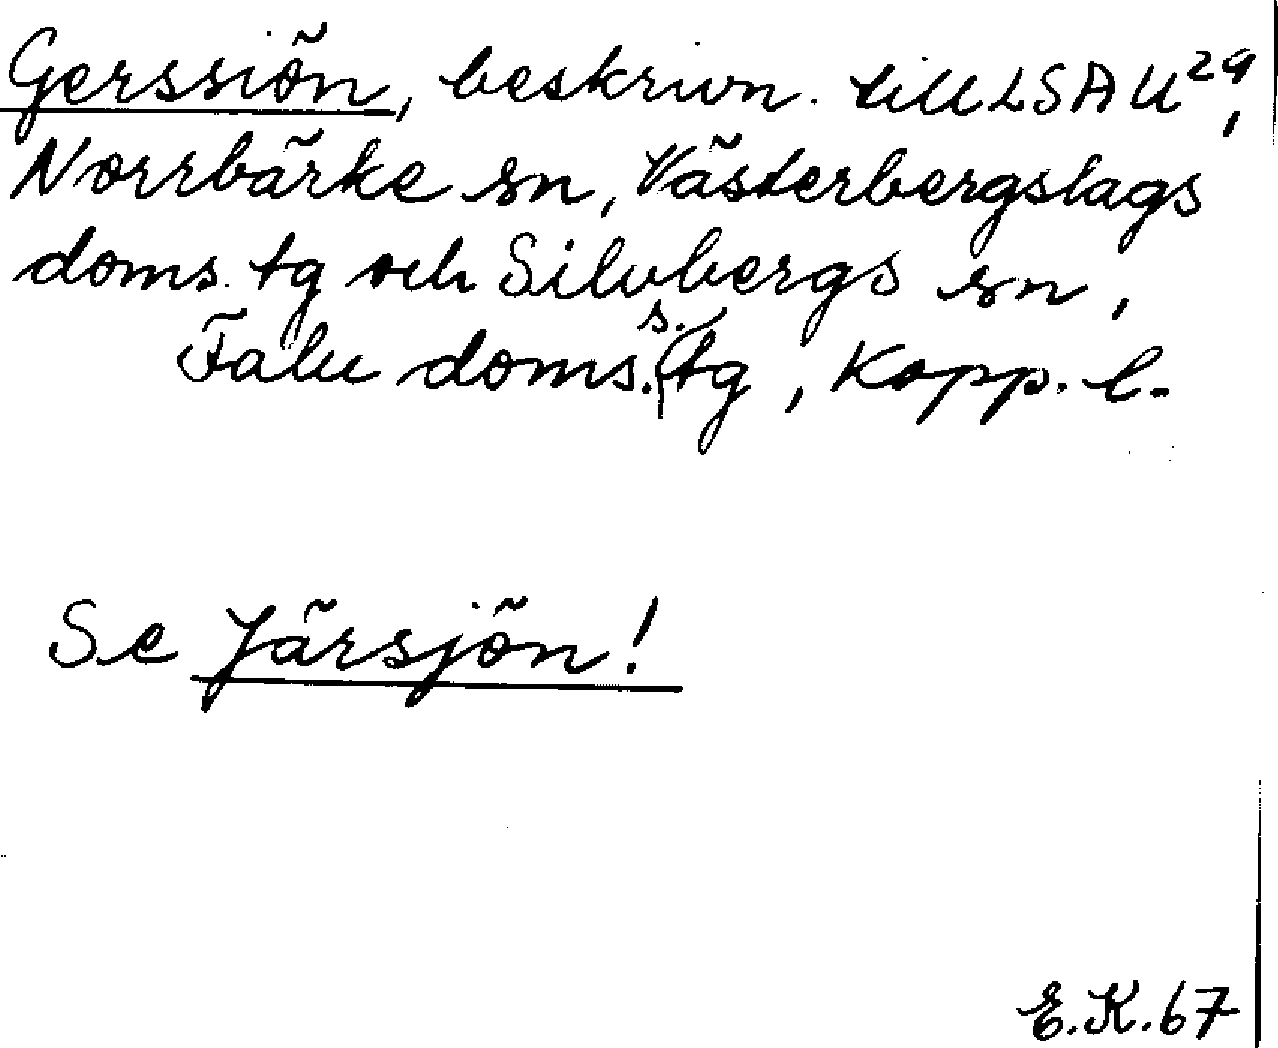 Gerssiön, beskrivn. till LSA U29,
Norrbärke sn, Västerbergslags
doms. tg och Silvbergs sn,
Falu doms. s. tg, Kopp. l.
Se Järsjön!
E.K. 67